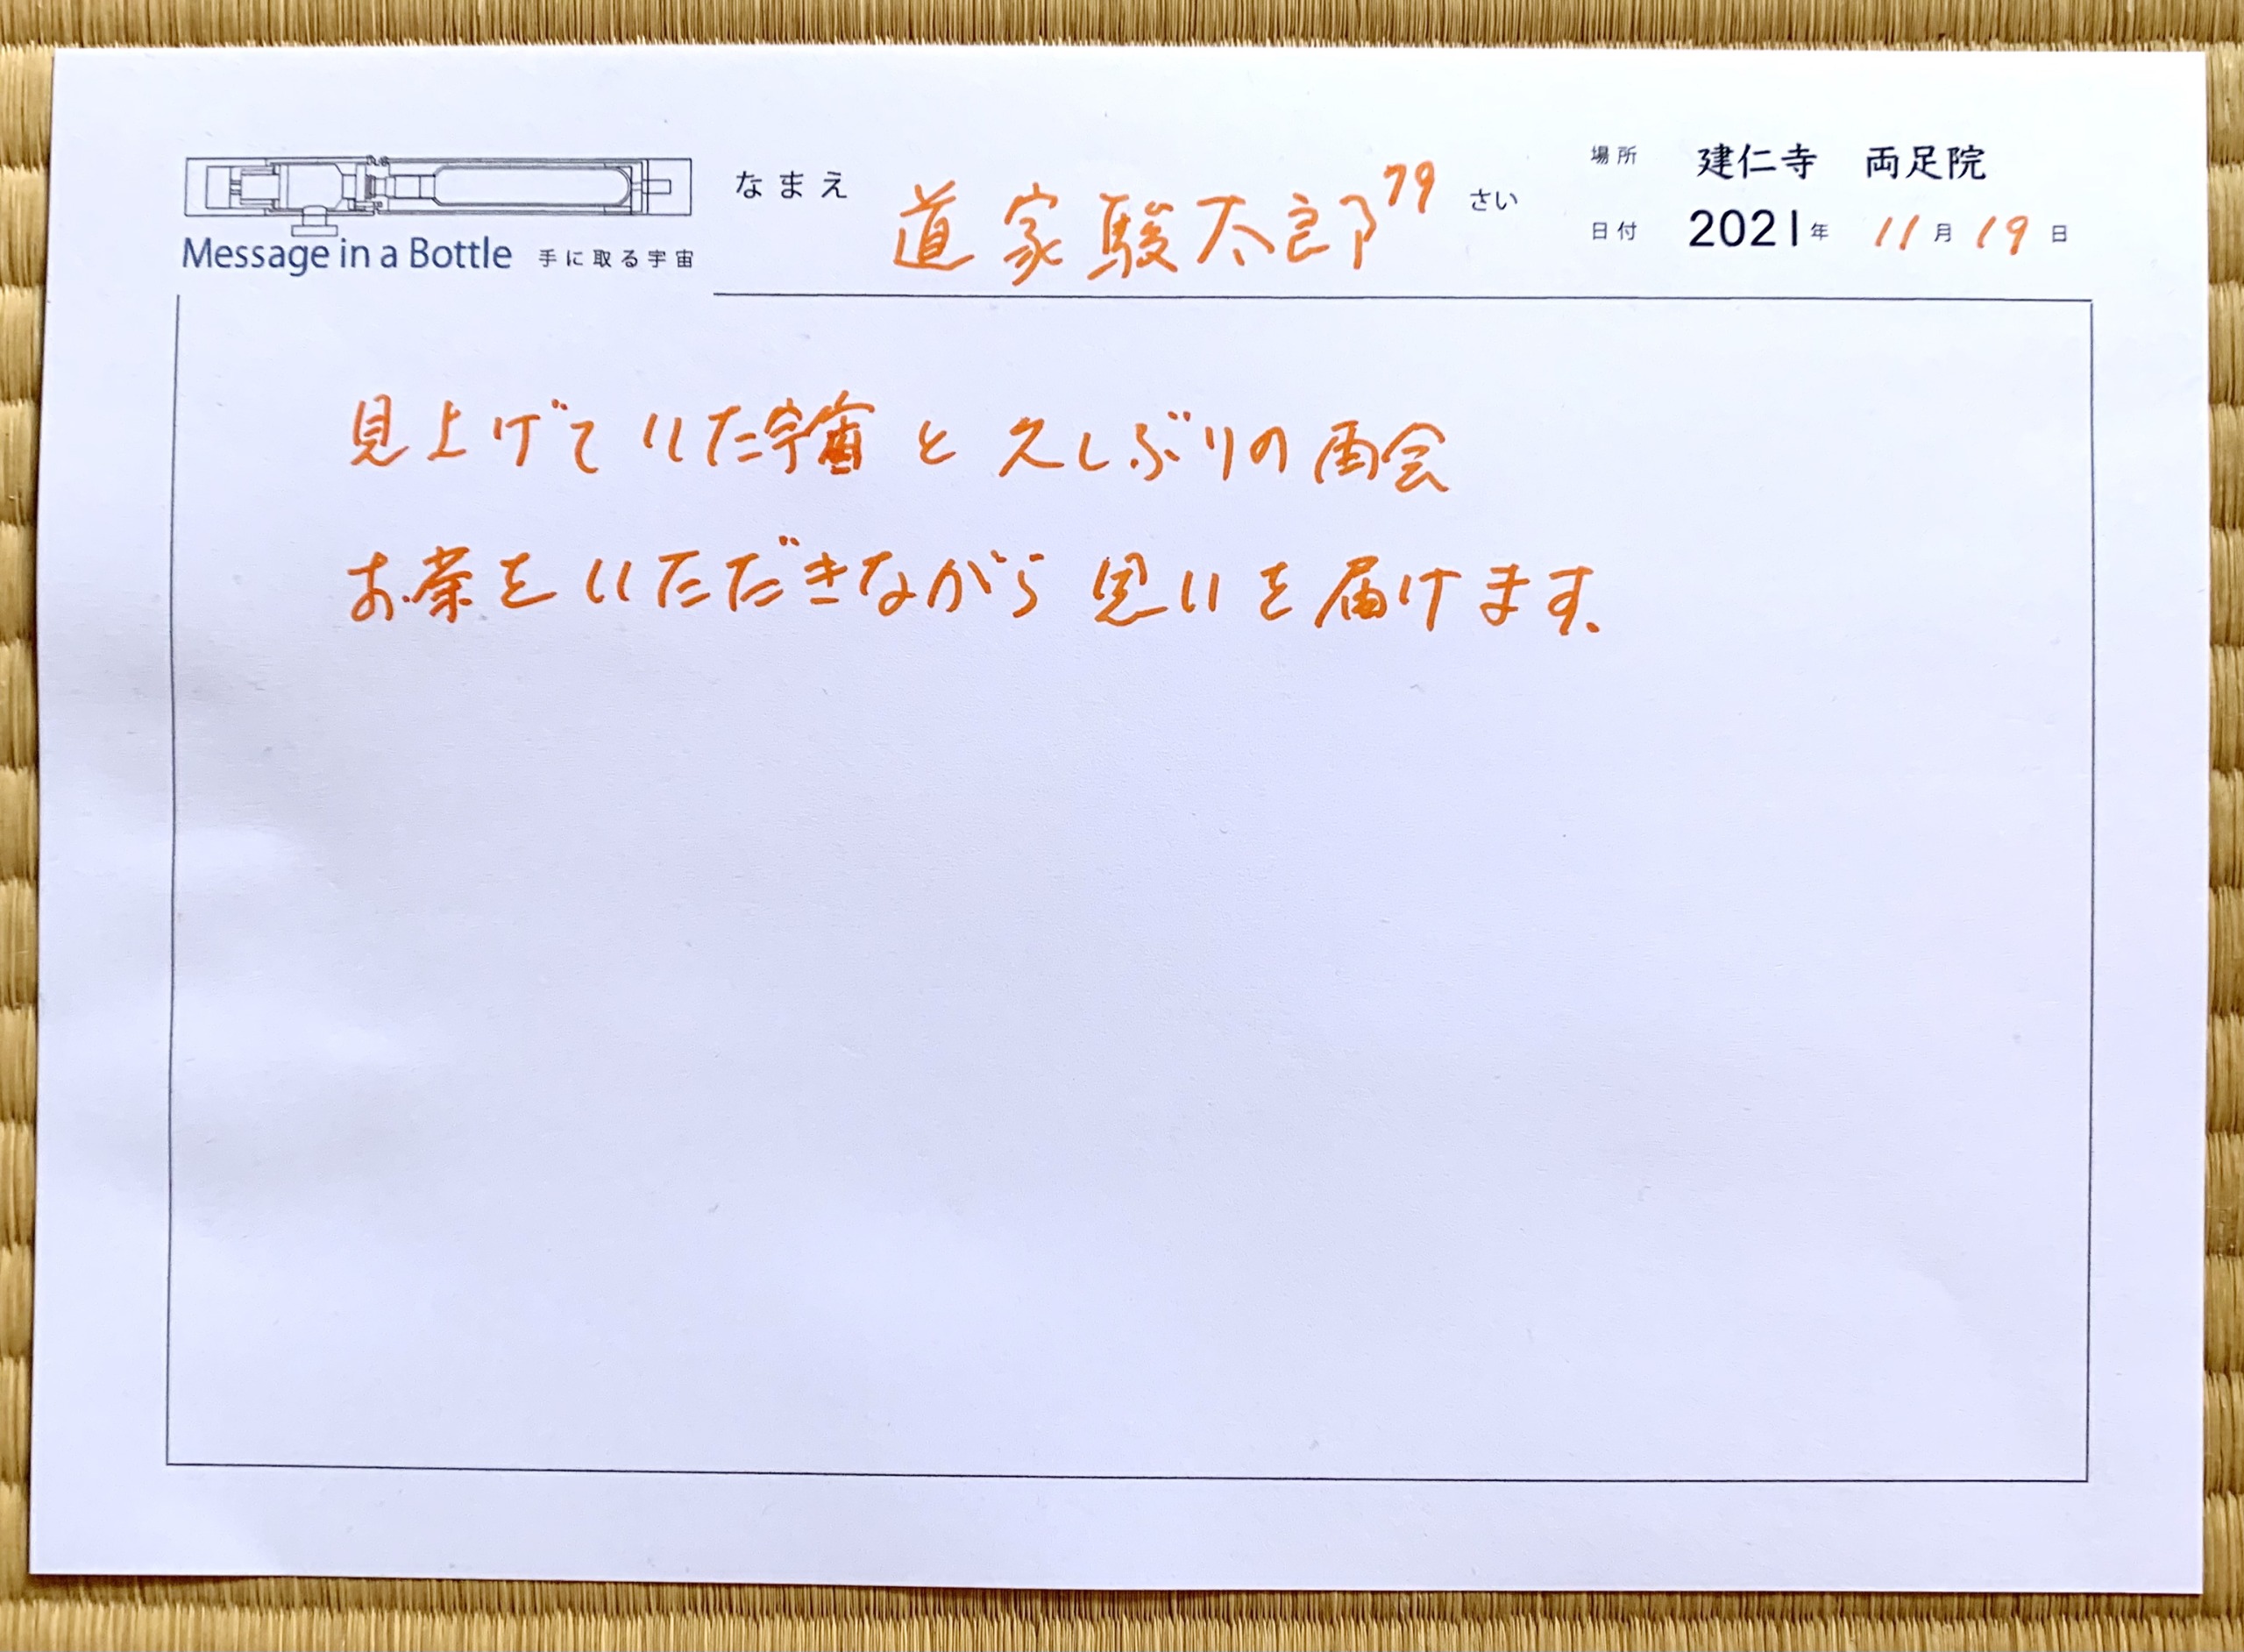 Message in a Bottle 手に取る宇宙
なまえ 道家駿太郎 79 さい
場所 建仁寺 両足院
日付 2021年 11月19日
見上げていた宇宙と久しぶりの再会
お茶をいただきながら思いを届けます.